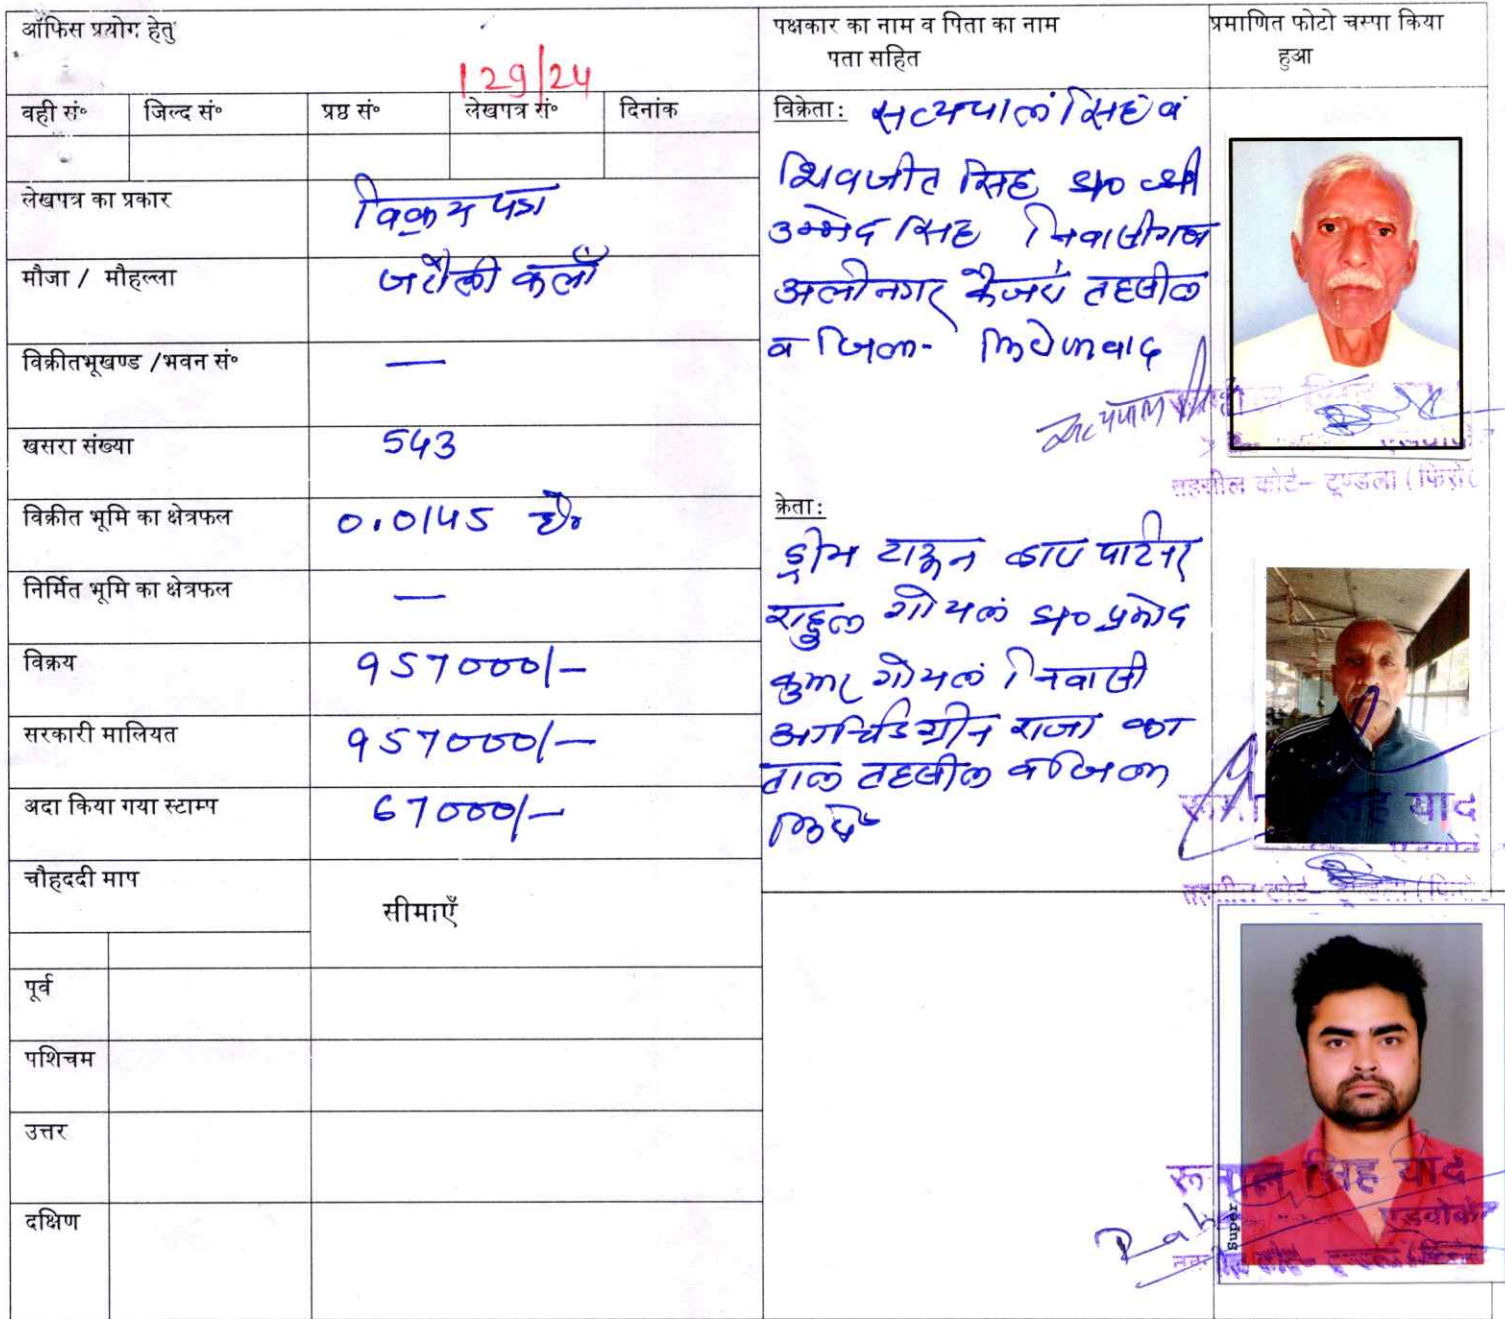 ऑफिस प्रयोग हेतु
129/24
वही सं॰ जिल्द सं॰ प्रष्ठ सं॰ लेखपत्र सं॰ दिनांक
लेखपत्र का प्रकार विक्रय पत्र
मौजा / मौहल्ला जटौली कलाँ
विक्रीतभूखण्ड /भवन सं॰ —
खसरा संख्या 543
विक्रीत भूमि का क्षेत्रफल 0.0145 है०
निर्मित भूमि का क्षेत्रफल —
विक्रय 957000/-
सरकारी मालियत 957000/-
अदा किया गया स्टाम्प 67000/-
चौहददी माप
सीमाएँ
पूर्व
पशिचम
उत्तर
दक्षिण
पक्षकार का नाम व पिता का नाम
पता सहित
विक्रेता: सत्यपाल सिंह व
शिवजीत सिंह S/o श्री
उम्मेद सिंह निवासीगण
अलीनगर कैंजरा तहसील
व जिला- फिरोजाबाद
सत्यपाल सिंह
क्रेता:
ड्रीम टाऊन द्वारा पार्टनर
राहुल गोयल S/o प्रमोद
कुमार गोयल निवासी
ग्रीन राजा का
ताल तहसील व जिला
फिरो०
प्रमाणित फोटो चस्पा किया
हुआ
तहसील कोर्ट- टूण्डला (फिरो
सिंह याद
तहसील कोर्ट- टूण्डला (फिरो
सिंह याद
एडवोकेट
Super